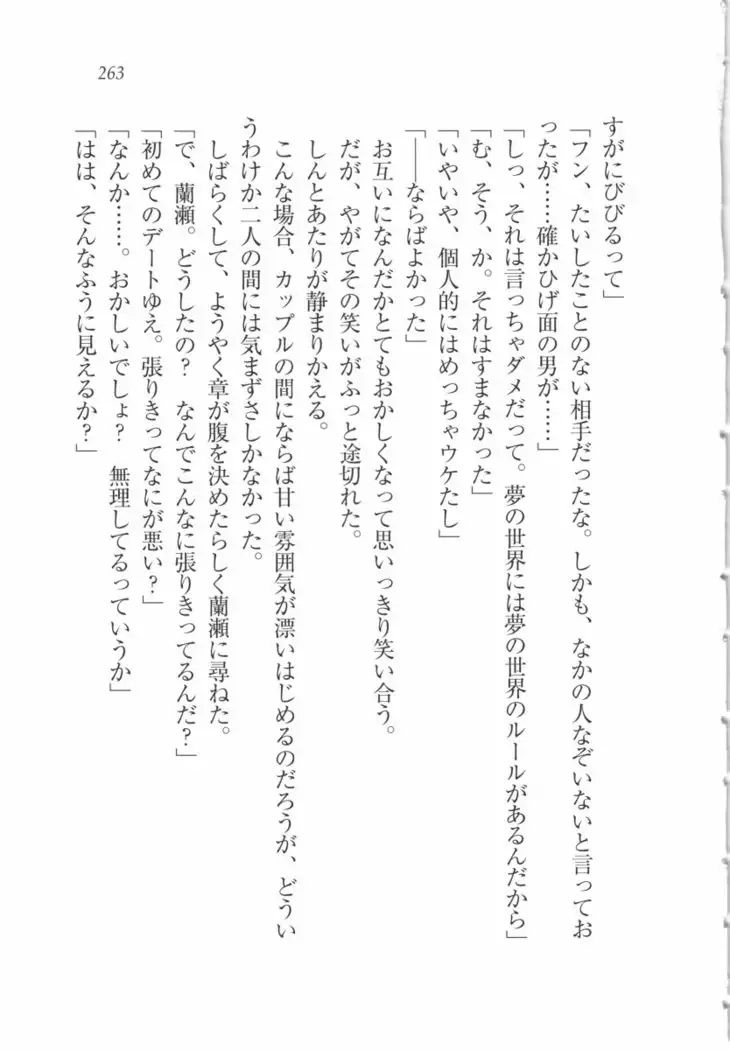 263
すがにびびるって」
「フン、たいしたことのない相手だったな。しかも、なかの人なぞいないと言ってお
ったが……確かひげ面の男が……」
「しっ、それは言っちゃダメだって。夢の世界には夢の世界のルールがあるんだから」
「む、そう、か。それはすまなかった」
「いやいや、個人的にはめっちゃウケたし」
「――ならばよかった」
お互いになんだかとてもおかしくなって思いっきり笑い合う。
だが、やがてその笑いがふっと途切れた。
しんとあたりが静まりかえる。
こんな場合、カップルの間にならば甘い雰囲気が漂いはじめるのだろうが、どうい
うわけか二人の間には気まずさしかなかった。
しばらくして、ようやく章が腹を決めたらしく蘭瀬に尋ねた。
「で、蘭瀬。どうしたの？　なんでこんなに張りきってるんだ？」
「初めてのデートゆえ。張りきってなにが悪い？」
「なんか……。おかしいでしょ？　無理してるっていうか」
「はは、そんなふうに見えるか？」